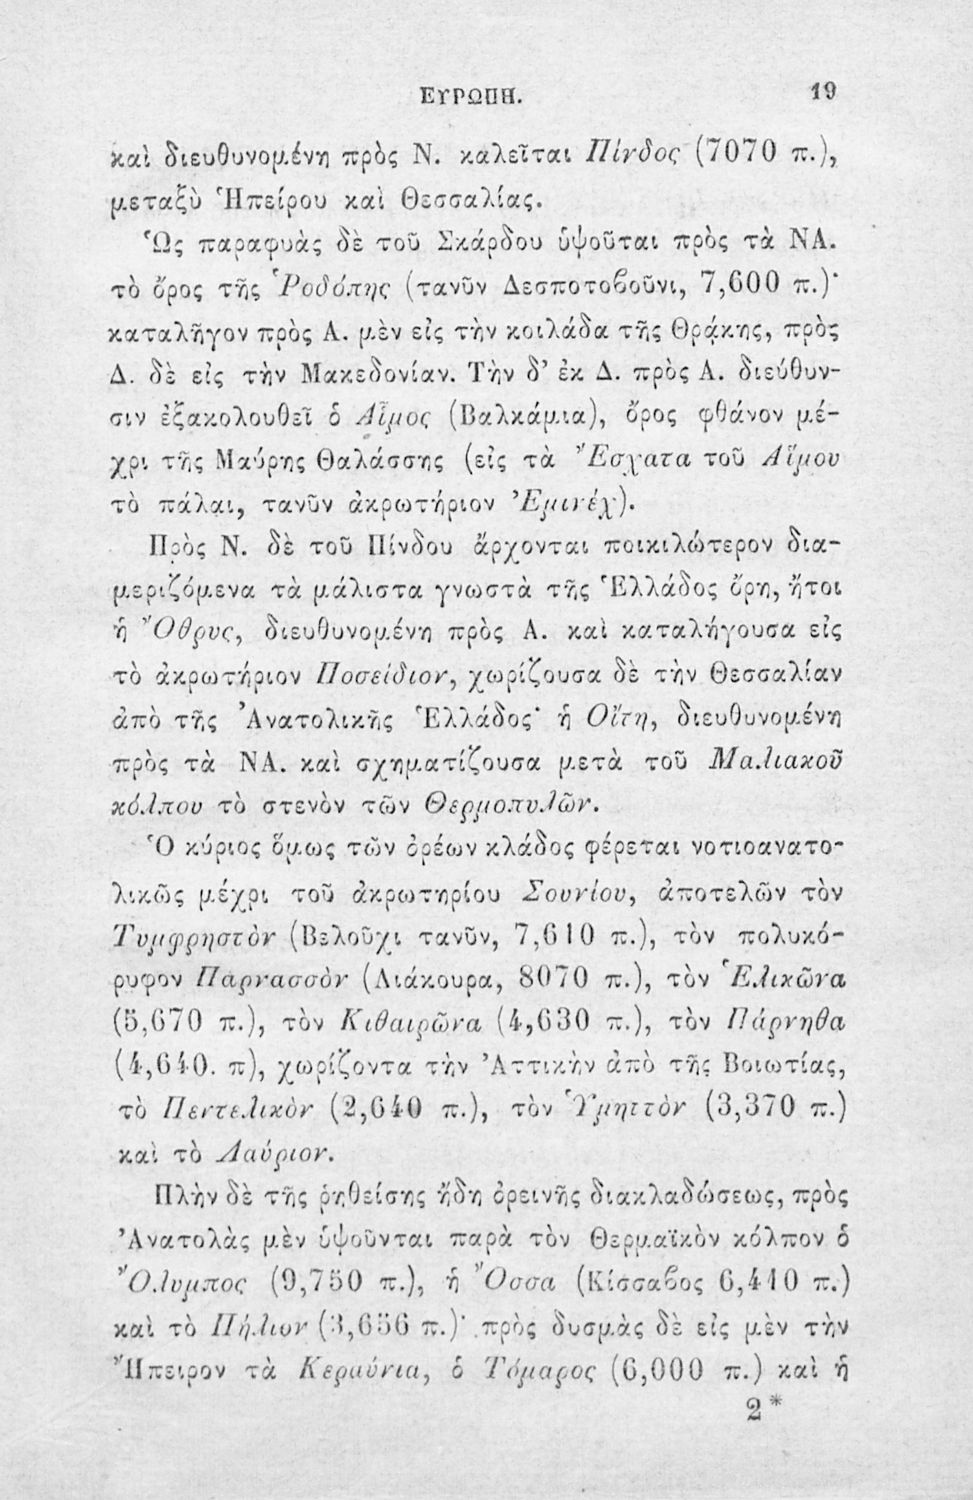 ΕΥΡΩΠΗ. 19
καὶ διευθυνομένη πρὸς Ν. καλεῖται Πίνδος (7070 π.),
μεταξὺ Ἠπείρου καὶ Θεσσαλίας.
Ὡς παραφυὰς δὲ τοῦ Σκάρδου ὑψοῦται πρὸς τὰ ΝΑ.
τὸ ὄρος τῆς Ῥοδόπης (τανῦν Δεσποτοβοῦνι, 7,600 π.)·
καταλῆγον πρὸς Α. μὲν εἰς τὴν κοιλάδα τῆς Θρᾴκης, πρὸς
Δ. δὲ εἰς τὴν Μακεδονίαν. Τὴν δ’ ἐκ Δ. πρὸς Α. διεύθυν-
σιν ἐξακολουθεῖ ὁ Αἷμος (Βαλκάμια), ὄρος φθάνον μέ-
χρι τῆς Μαύρης Θαλάσσης (εἰς τὰ Ἔσχατα τοῦ Αἵμου
τὸ πάλαι, τανῦν ἀκρωτήριον Ἐμινέχ).
Πρὸς Ν. δὲ τοῦ Πίνδου ἄρχονται ποικιλώτερον δια-
μεριζόμενα τὰ μάλιστα γνωστὰ τῆς Ἑλλάδος ὄρη, ἤτοι
ἡ Ὄθρυς, διευθυνομένη πρὸς Α. καὶ καταλήγουσα εἰς
τὸ ἀκρωτήριον Ποσείδιον, χωρίζουσα δὲ τὴν Θεσσαλίαν
ἀπὸ τῆς Ἀνατολικῆς Ἑλλάδος· ἡ Οἴτη, διευθυνομένη
πρὸς τὰ ΝΑ. καὶ σχηματίζουσα μετὰ τοῦ Μαλιακοῦ
κόλπου τὸ στενὸν τῶν Θερμοπυλῶν.
Ὁ κύριος ὅμως τῶν ὀρέων κλάδος φέρεται νοτιοανατο-
λικῶς μέχρι τοῦ ἀκρωτηρίου Σουνίου, ἀποτελῶν τὸν
Τυμφρηστὸν (Βελοῦχι τανῦν, 7,610 π.), τὸν πολυκό-
ρυφον Παρνασσὸν (Λιάκουρα, 8070 π.), τὸν Ἑλικῶνα
(5,670 π.), τὸν Κιθαιρῶνα (4,630 π.), τὸν Πάρνηθα
(4,640. π), χωρίζοντα τὴν Ἀττικὴν ἀπὸ τῆς Βοιωτίας,
τὸ Πεντελικὸν (2,640 π.), τὸν Ὑμηττὸν (3,370 π.)
καὶ τὸ Λαύριον.
Πλὴν δὲ τῆς ῥηθείσης ἤδη ὀρεινῆς διακλαδώσεως, πρὸς
Ἀνατολὰς μὲν ὑψοῦνται παρὰ τὸν Θερμαϊκὸν κόλπον ὁ
Ὄλυμπος (9,750 π.), ἡ Ὄσσα (Κίσσαβος 6,410 π.)
καὶ τὸ Πήλιον (3,656 π.)· πρὸς δυσμὰς δὲ εἰς μὲν τὴν
Ἤπειρον τὰ Κεραύνια, ὁ Τόμαρος (6,000 π.) καὶ ἡ
2*